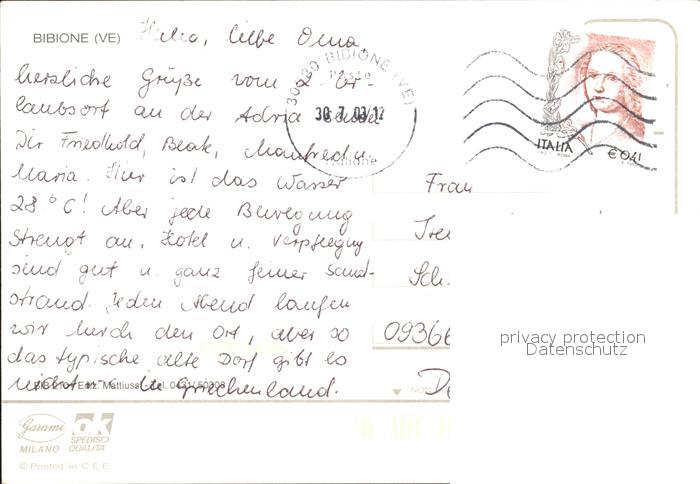 BIBIONE (VE)
Hallo, liebe Oma,
herzliche Grüße vom 2. Ur-
laubsort an der Adria sendet
Dir Friedhold, Beate, Manfred u.
Maria. Hier ist das Wasser
28° C! Aber jede Bewegung
strengt an. Hotel u. Verpflegung
sind gut u. ganz feiner Sand-
strand. Jeden Abend laufen
wir durch den Ort, aber so
das typische alte Dorf gibt es
nicht wie in Griechenland.
BIBIONE (VE)
Poste
30.7.03/12
ITALIA
€ 0,41
Frau
0936
privacy protection
Datenschutz
Garami
MILANO
ok
SPEDISCI
QUALITÀ
© Printed in C.E.E.